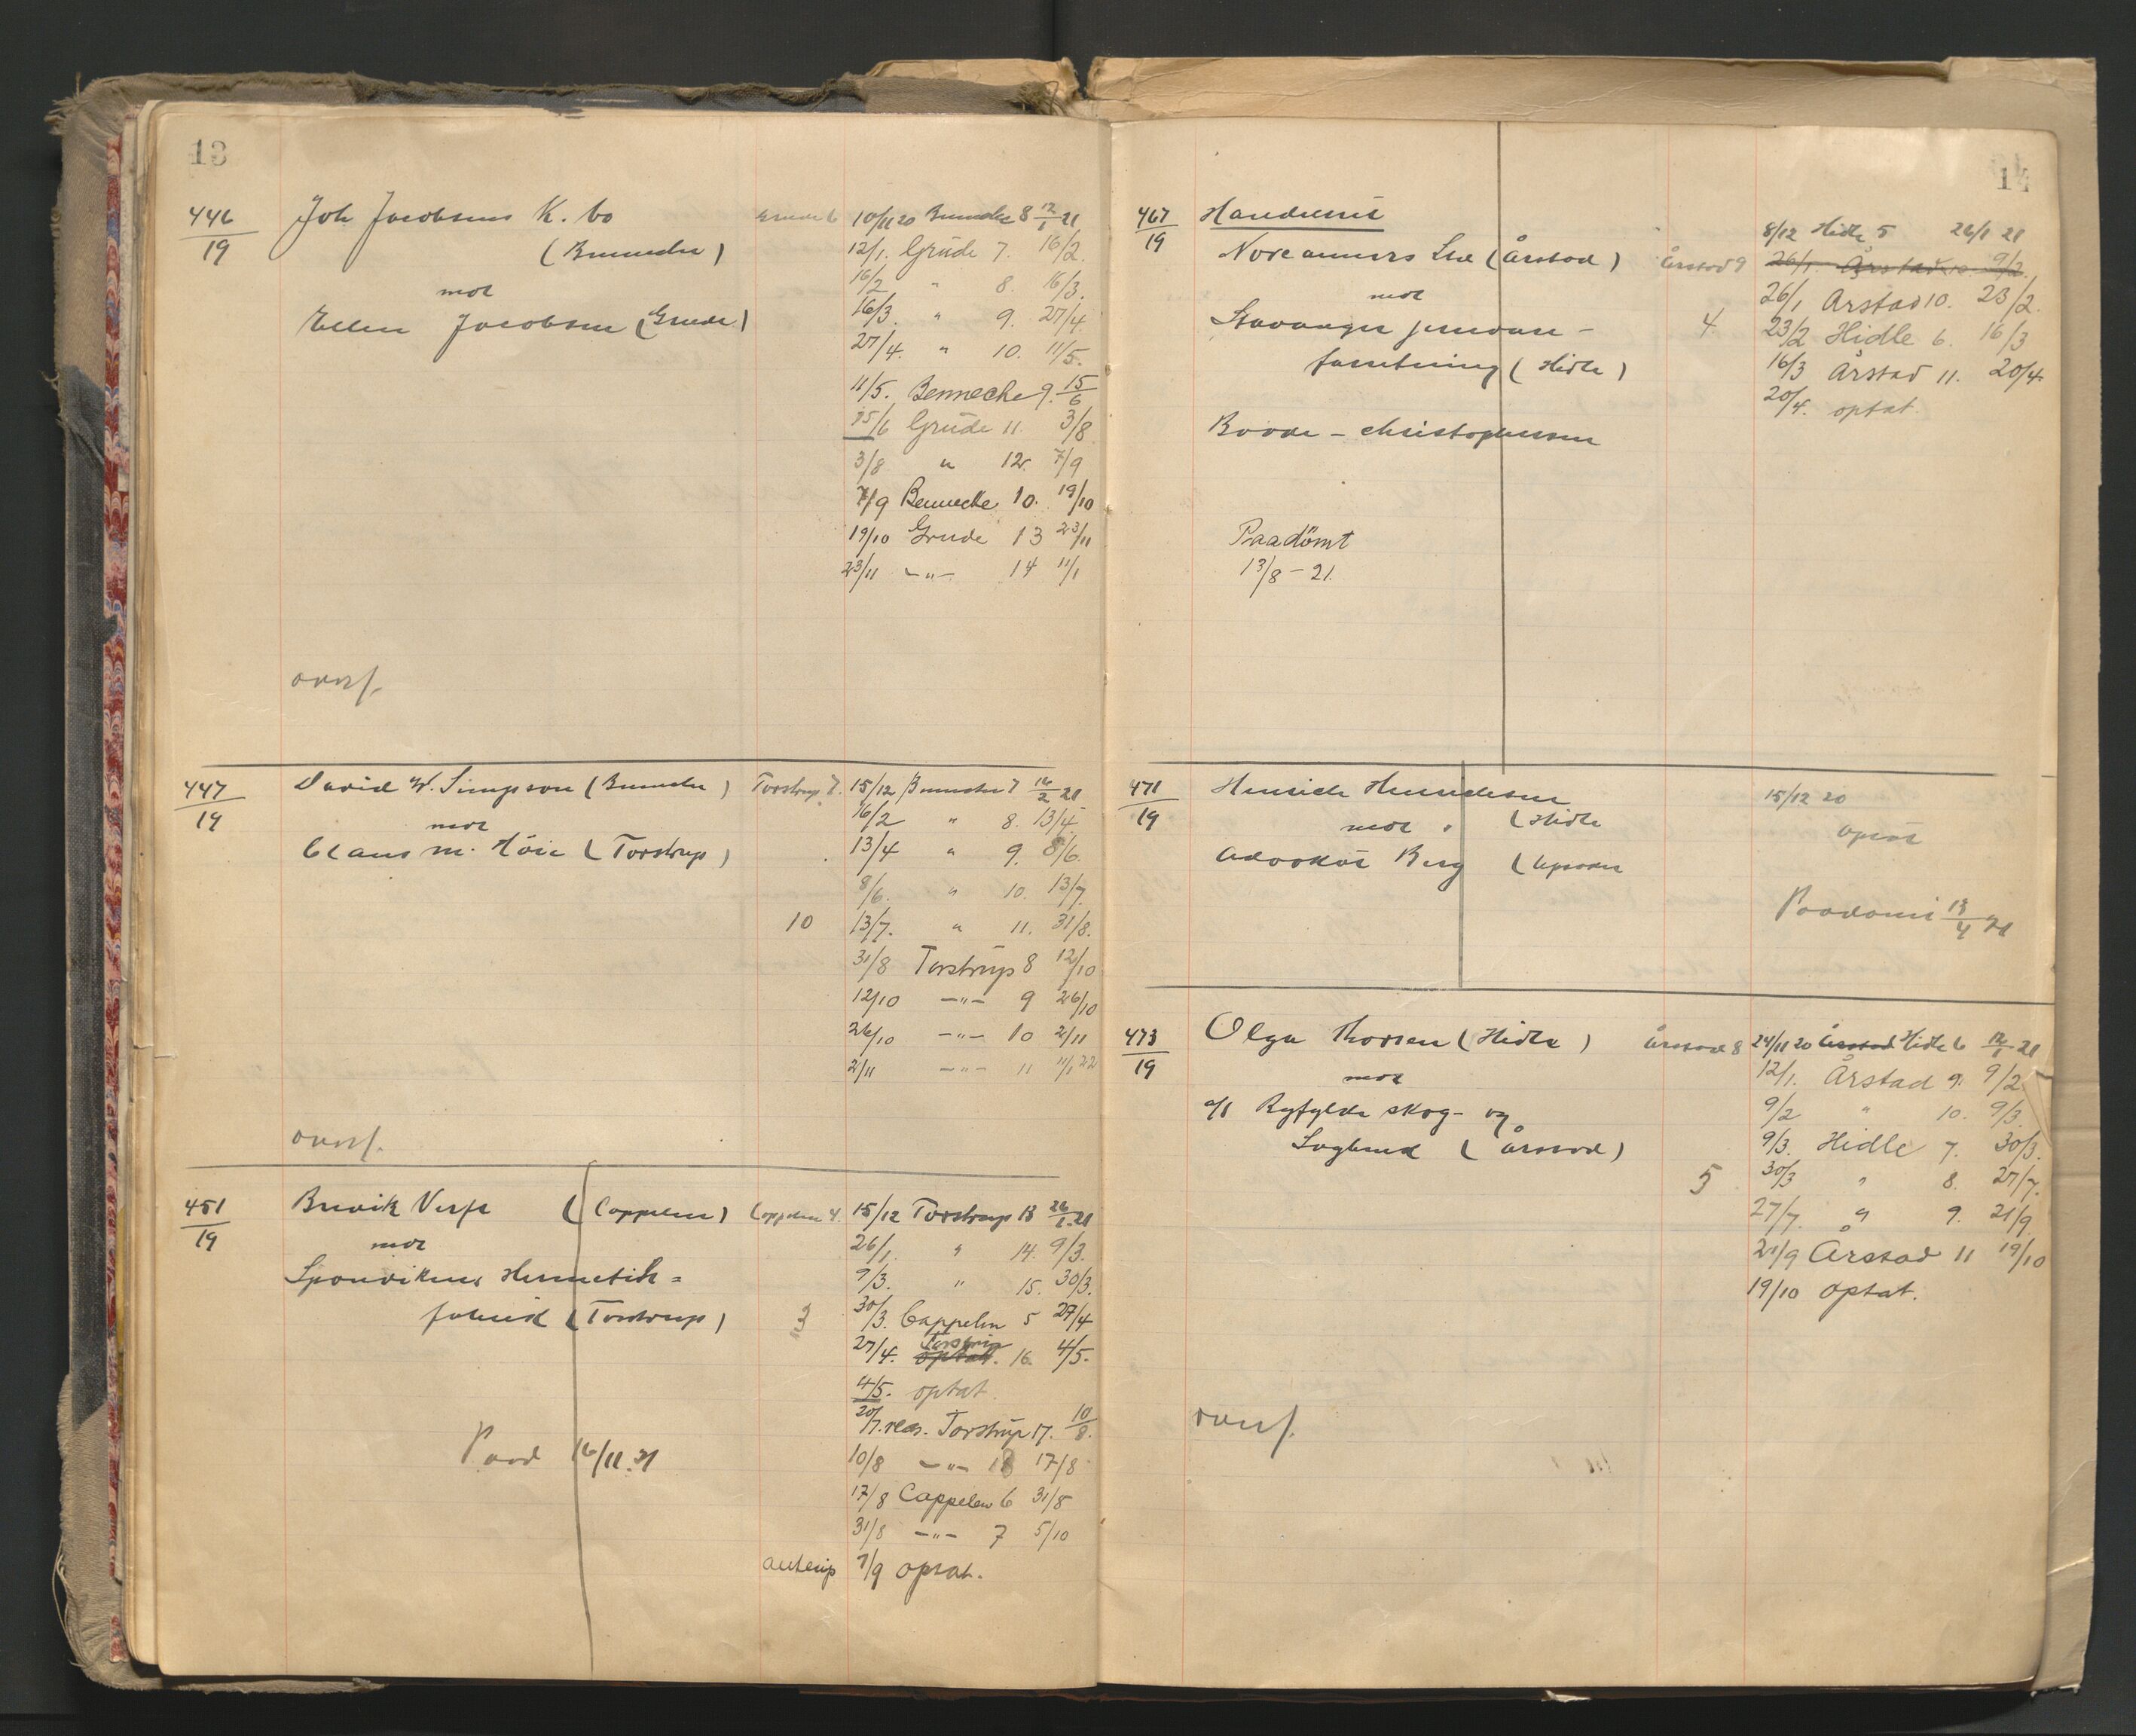 13
446/19
Joh Jacobsens K. bo
(Bennecke)
mot
Ellen Jacobsen (Grude)
Grude 6
10/11 20 Bennecke 8 12/1 21
12/1. Grude 7. 16/2.
16/2 " 8. 16/3.
16/3. " 9. 27/4.
27/4. " 10. 11/5.
11/5. Bennecke 9. 15/6
15/6 Grude 11. 3/8
3/8 " 12. 7/9
7/9 Bennecke 10. 19/10
19/10 Grude 13 23/11
23/11 -"- 14 11/1
overf.
447/19
David W. Simpson (Bennecke)
mot
Claus M. Höie (Torstrup)
Torstrup 7.
10
15/12 Bennecke 7 16/2 21
16/2 " 8. 13/4.
13/4 " 9. 8/6.
8/6. " 10. 13/7.
13/7. " 11. 31/8.
31/8 Torstrup 8 12/10
12/10 -"- 9 26/10
26/10 -"- 10 2/11
2/11 -"- 11 11/1 22
overf.
451/19
Brevik Verft (Cappelen)
mot
Sponvikens Hermetik=
fabrik (Torstrup)
Cappelen 4.
3
15/12 Torstrup 13 26/1 21
26/1. " 14. 9/3.
9/3. " 15. 30/3.
30/3. Cappelen 5 27/4
27/4. optat. Torstrup 16. 4/5.
4/5. optat.
20/7. reas. Torstrup 17. 10/8.
10/8 -"- 18 17/8
17/8 Cappelen 6 31/8
31/8 -"- 7 5/10
7/9 optat.
Paad 16/11.21
14
467/19
Handelsret
Noreanners Ltd (Årstad)
mot
Stavanger
forretning (Hidle)
Årstad 9
4.
8/12 Hidle 5 26/1 21
26/1. Årstad 10 9/2.
26/1 Årstad 10. 23/2.
23/2 Hidle 6. 16/3
16/3 Årstad 11. 20/4.
20/4. optat.
Boode - Christophersen
Paadömt
13/8-21.
471/19
Henrich Henrichsen
mot (Hidle
Advokat Berg
15/12 20
optat
Paadömt 13/4 21
473/19
Olga Thorsen (Hidle)
mot
a/s Ryfylke skog- og
Sagbruk (Årstad)
Årstad 8
5
24/11 20 Årstad Hidle 6 12/1 21
12/1. Årstad 9. 9/2
9/2 " 10. 9/3.
9/3. Hidle 7. 30/3.
30/3 " 8. 27/7.
27/7. " 9. 21/9.
21/9 Årstad 11 19/10
19/10 optat.
overf.